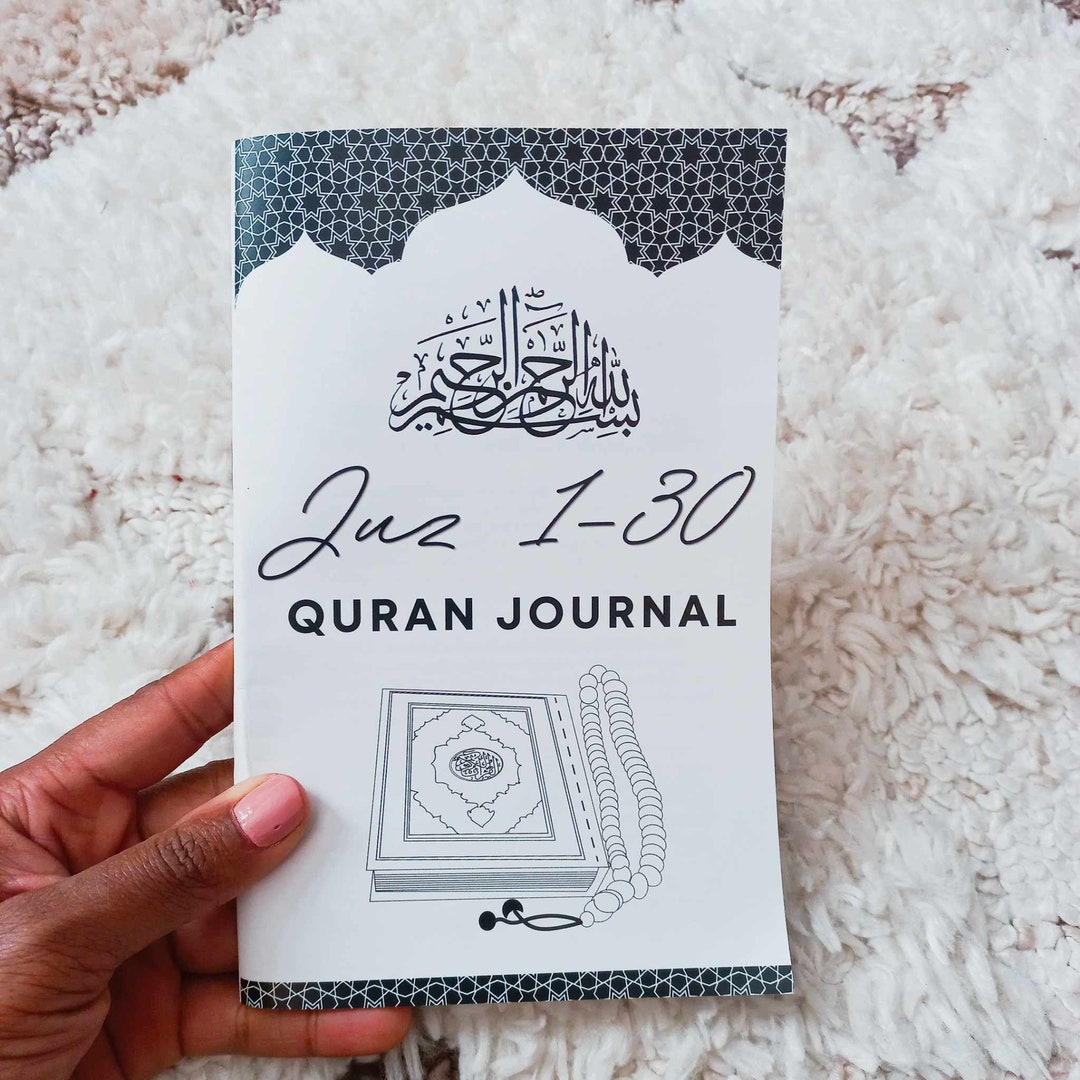 بسم الله الرحمن الرحيم
Juz 1-30
QURAN JOURNAL